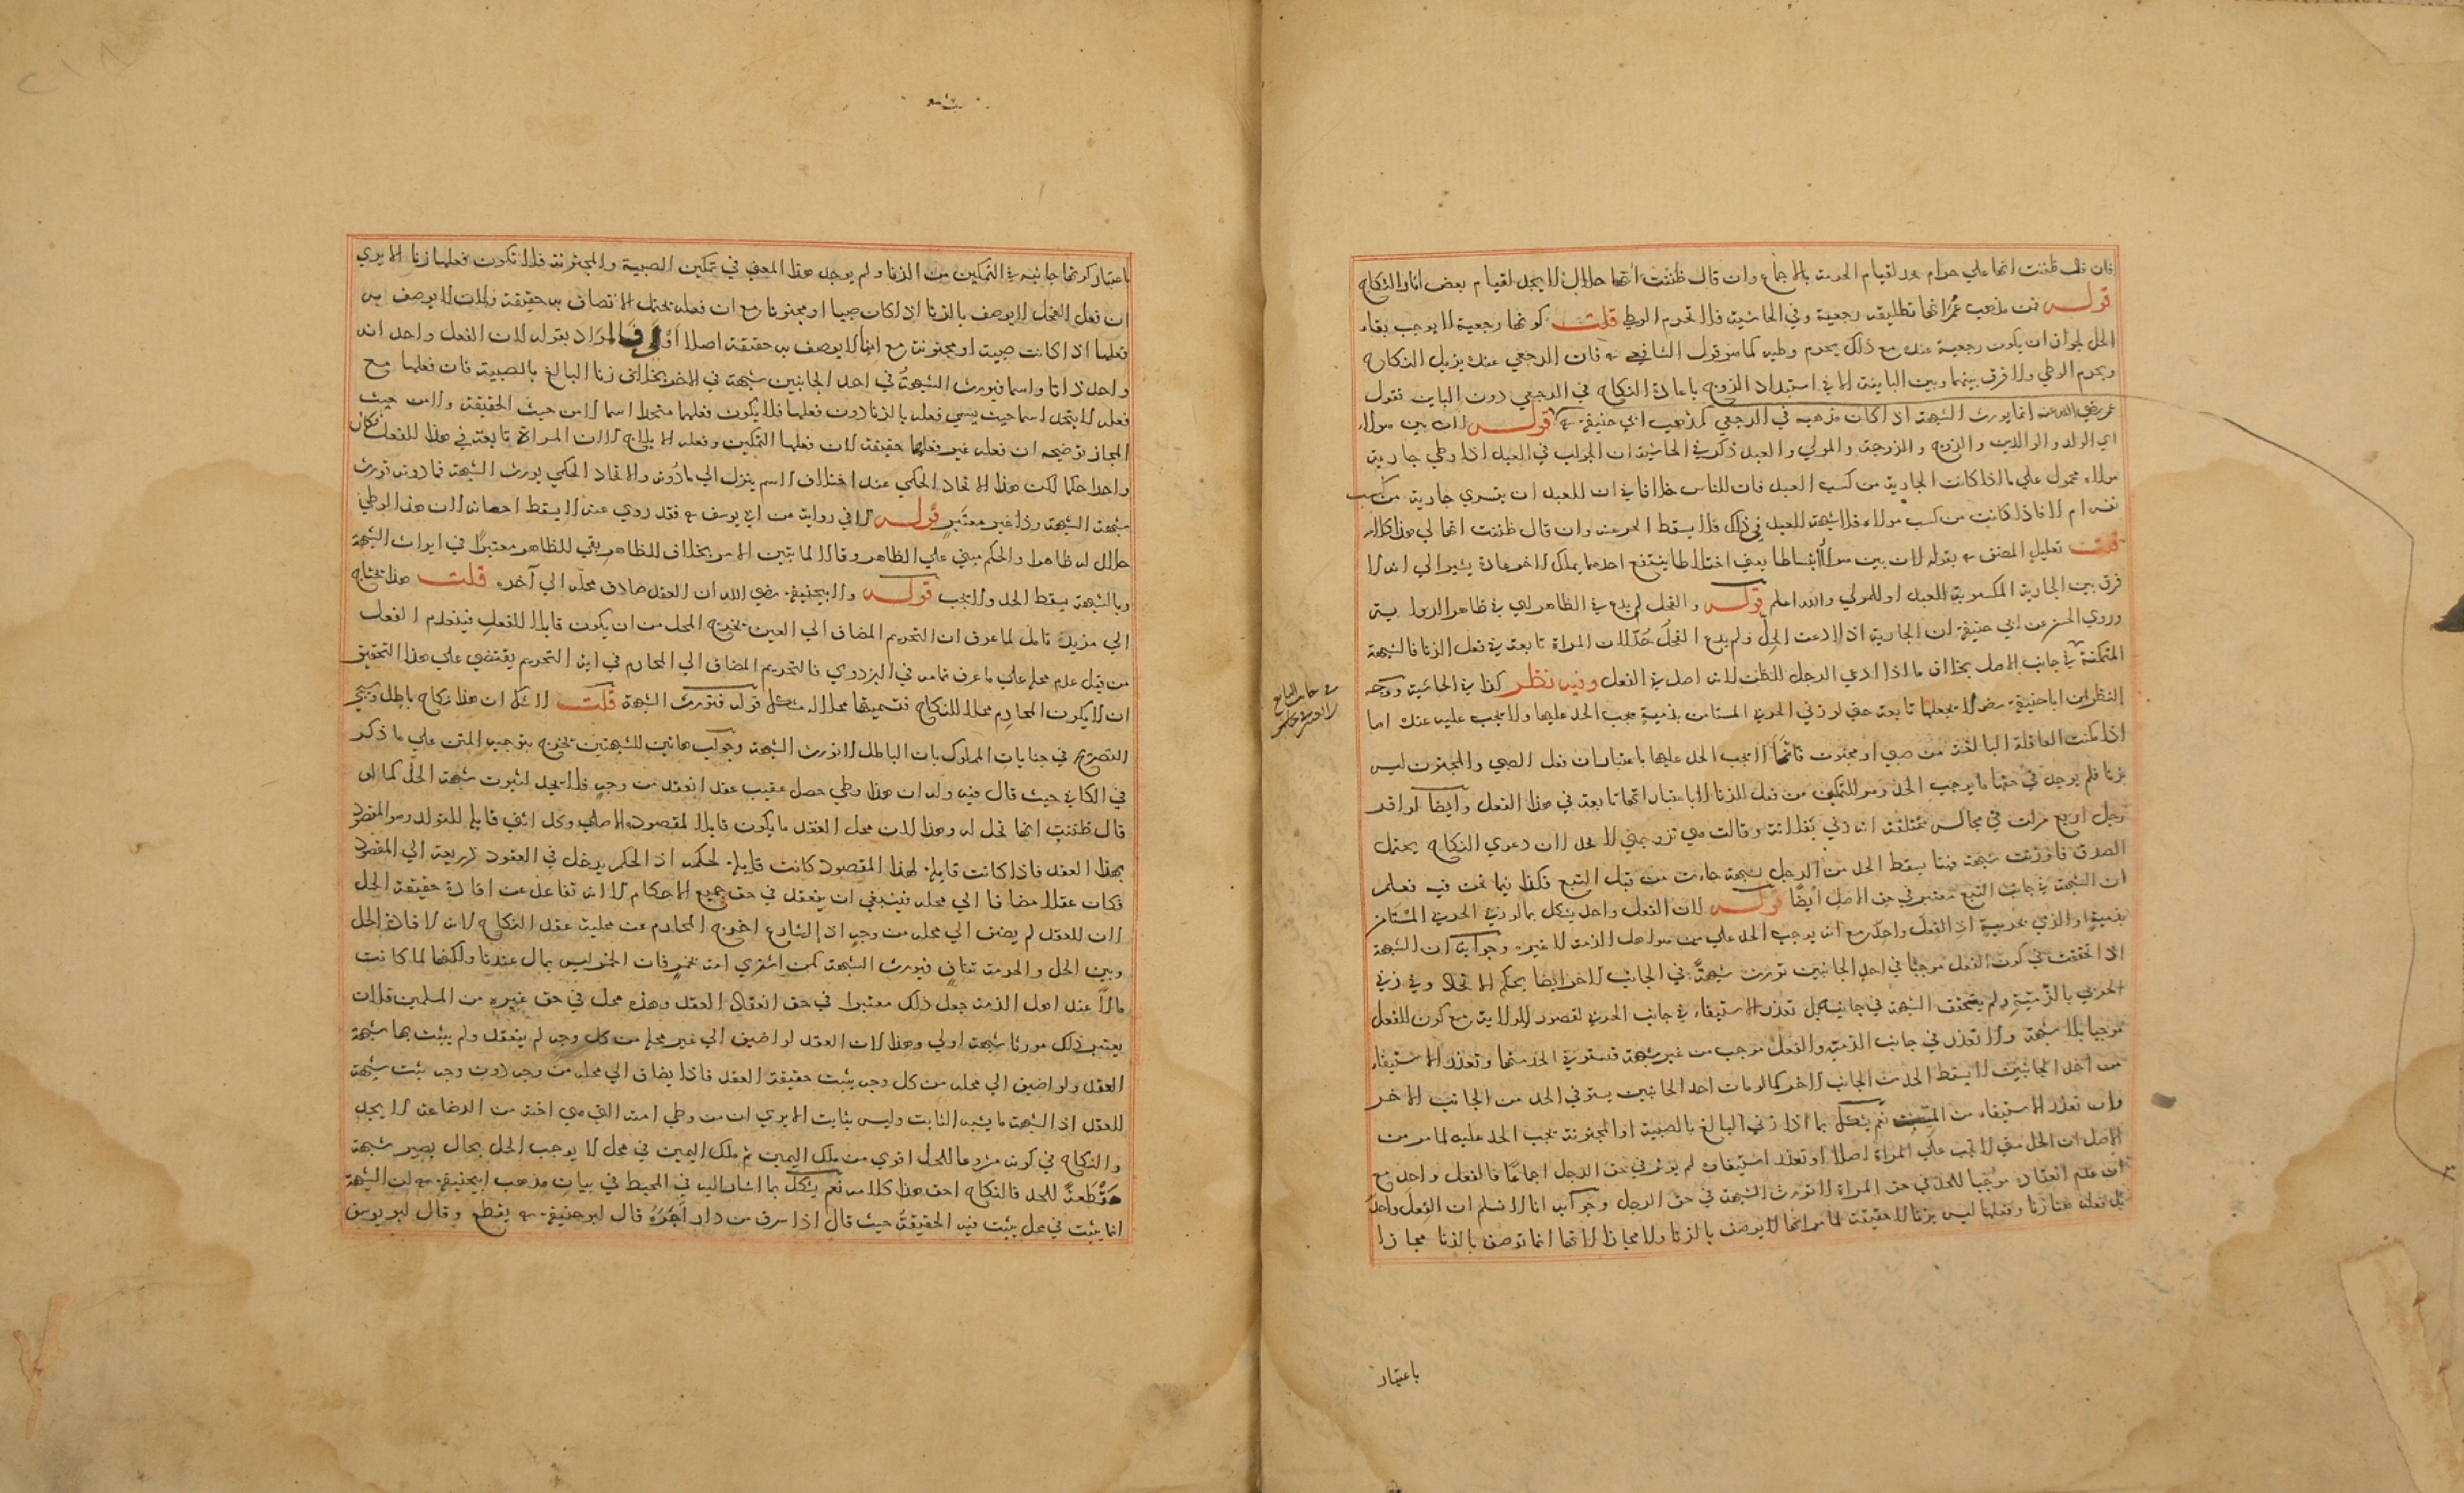 فان قال ظننت انها علي حرام حد لقيام الحرمة بالاجماع وان قال ظننت انها حلال لا يحد لقيام بعض اثار النكاح
قوله فمن مذهب عمر انها تطليقة رجعية وفي الحاشية فلا تحرم الوطي قلت كونها رجعية لا يوجب بقاء
الحل لجواز ان يكون رجعية عنده مع ذلك يحرم وطيه كما هو قول الشافعي فان الرجعي عنده يزيل النكاح
ويحرم الوطي ولا فرق بينهما وبين الباينة الا في استبداد الزوج باعادة النكاح في الرجعي دون الباين فقول
عمر رضي الله عنه انما يورث الشبهة اذا كان مذهبه في الرجعي كمذهب ابي حنيفة قوله لان بين هولاء
اي الولد والوالدين والزوج والزوجة والمولي والعبد ذكر في الحاشية ان الجواب في العبد اذا وطي جارية
مولاه محمول علي ما اذا كانت الجارية من كسب العبد فان للناس خلافا في ان للعبد ان يتسري جارية من كسب
نفسه ام لا فاذا كانت من كسب مولاه فلا شبهة للعبد في ذلك فلا يسقط الحد عنه وان قال ظننت انها لي هذا كلامه
قلت تعليل المصنف بقوله لان بين هولاء انبساطا يعني اختلاطا ينتفع احدهما بملك الاخر عادة يشير الي انه لا
فرق بين الجارية المكسوبة للعبد او للمولي والله اعلم قوله والفحل لم يدع في الظاهر اي في ظاهر الرواية
وروي الحسن عن ابي حنيفة ان الجارية اذا ادعت الحل ولم يدع الفحل حد لان المراة تابعة في فعل الزنا فالشبهة
المتمكنة في جانب الاصل بخلاف ما اذا ادعي الرجل الظن لانه اصل في الفعل وفيه نظر كذا في الحاشية ووجه
النظر ان ابا حنيفة رضه لا يجعلها تابعة حتي لو زني الحربي المستامن بذمية يجب الحد عليها ولا يجب عليه عنده اما
اذا مكنت العاقلة البالغة من صبي او مجنون فانما لا يجب الحد عليها باعتبار ان فعل الصبي والمجنون ليس
بزنا فلم يوجد في حقها ما يوجب الحد وهو التمكين من فعل الزنا لا باعتبار انها تابعة في هذا الفعل وايضا لو اقر
رجل اربع مرات في مجالس مختلفة انه زني بفلانة وقالت هي تزوجني لا يحد لان دعوي النكاح يحتمل
الصدق فاورثت شبهة فهنا يسقط الحد من الرجل بشبهة جاءت من قبل التبع فكذا فيما نحن فيه فعلم
ان الشبهة في جانب التبع معتبر في حق الاصل ايضا قوله لان الفعل واحد يشكل بما لو زني الحربي المستامن
بذمية او الذمي بحربية اذ الفعل واحد مع انه يوجب الحد علي من هو اهل الذمة لا غير وجوابه ان الشبهة
اذا تحققت في كون الفعل موجبا في احد الجانبين تورث شبهة في الجانب الاخر ايضا بحكم الاتحاد وفي زني
الحربي بالذمية لم يتحقق الشبهة في جانبه بل تعذر الاستيفاء في جانب الحربي لقصور الولاية مع كون الفعل
موجبا بلا شبهة ولا تعذر في جانب الذمية والفعل موجب من غير شبهة فيستوفي الحد منها وتعذر الاستيفاء
من احد الجانبين لا يسقط الحد من الجانب الاخر كما لو مات احد الجانبين يستوفي الحد من الجانب الاخر
وان تعذر الاستيفاء من الميت نعم يشكل بما اذا زني البالغ بالصبية او المجنونة يجب الحد عليه لما مر من
الاصل ان الحد متي لا يجب علي المراة اصلا او تعذر استيفاؤه لم يؤثر في حق الرجل اجماعا فالفعل واحد مع
ان عدم انعقاده موجبا للحد في حق المراة لا تورث الشبهة في حق الرجل وجوابه انا لا نسلم ان الفعل واحد
بل فعله هنا زنا وفعلها ليس بزنا لا حقيقة لما مر انها لا يوصف بالزنا ولا مجازا لانها انما توصف بالزنا مجازا
باعتبار
باعتبار كونها جانية في التمكين من الزنا ولم يوجد هذا المعني في تمكين الصبية والمجنونة فلا تكون فعلها زنا الا يري
ان فعل الفحل لا يوصف بالزنا اذا كان صبيا او مجنونا مع ان فعله يحتمل الاتصاف به حقيقة فلان لا يوصف به
فعلها اذا كانت صبية او مجنونة مع انها لا يوصف به حقيقة اصلا اولي فالمراد بقوله لان الفعل واحد انه
واحد ذاتا واسما فيورث الشبهة في احد الجانبين شبهة في الاخر بخلاف زنا البالغ بالصبية فان فعلها مع
فعله لا يتحد اسما حيث يسمي فعله بالزنا دون فعلها فلا يكون فعلهما متحدا اسما لا من حيث الحقيقة ولا من حيث
المجاز توضيحه ان فعله غير فعلها حقيقة لان فعلها التمكين وفعله الايلاج الا ان المراة تابعة في هذا الفعل فكان
واحدا حكما لكن هذا الاتحاد الحكمي عند اختلاف الاسم ينزل الي ما دونه والاتحاد الحكمي يورث الشبهة فما دونه تورث
شبهة الشبهة وذا غير معتبر قوله لا في رواية عن ابي يوسف فقد روي عنه لا يسقط احصانه لان هذا الوطي
حلال له ظاهرا والحكم مبني علي الظاهر وقالا لما تبين الامر بخلاف الظاهر بقي الظاهر معتبرا في ايراث الشبهة
وبالشبهة يسقط الحد ولا يجب قوله ولابي حنيفة رضي الله ان العقد صادف محله الي آخره قلت هذا يحتاج
الي مزيد تامل لما عرف ان التحريم المضاف الي العين يخرج المحل من ان يكون قابلا للفعل فينعدم الفعل
من قبل عدم محله علي ما عرف تمامه في البزدوي فالتحريم المضاف الي المحارم في اية التحريم يقتضي علي هذا التحقيق
ان لا يكون المحارم محلا للنكاح فتسميتها محلا له مشكل قوله فتورث الشبهة قلت لا شك ان هذا نكاح باطل وسيجي
التصريح في جنايات المملوك بان الباطل لا تورث الشبهة وجواب هاتين الشبهتين يخرج بتوجيه المتن علي ما ذكر
في الكافي حيث قال فيه وله ان هذا وطي حصل عقيب عقد انعقد من وجه فلا يحد لثبوت شبهة الحل كما لو
قال ظننت انها تحل له وهذا لان محل العقد ما يكون قابلا لمقصوده الاصلي وكل انثي قابلة للتوالد وهو المقصود
بهذا العقد فاذا كانت قابلة لهذا المقصود كانت قابلة لحكمه اذ الحكم يدخل في العقود ذريعة الي المقصود
فكان عقدا مضافا الي محله فينبغي ان ينعقد في حق جميع الاحكام الا انه تقاعد عن افادة حقيقة الحل
لان العقد لم يضف الي محله من وجه اذ الشارع اخرج المحارم عن محلية عقد النكاح لانه لافادة الحل
وبين الحل والحرمة تناف فيورث الشبهة كمن اشتري امة بخمر فان الخمر ليس بمال عندنا ولكنها لما كانت
مالا عند اهل الذمة جعل ذلك معتبرا في حق انعقاد العقد وهذه محل في حق غيره من المسلمين فلان
يعتبر ذلك مورثا شبهة اولي وهذا لان العقد لو اضيف الي غير محله من كل وجه لم ينعقد ولم يثبت بها شبهة
العقد ولو اضيف الي محله من كل وجه يثبت حقيقة العقد فاذا يضاف الي محله من وجه دون وجه يثبت شبهة
العقد اذ الشبهة ما يشبه الثابت وليس بثابت الا يري ان من وطي امته التي هي اخته من الرضاعة لا يحد
والنكاح في كونه مشروعا للحل اقوي من ملك اليمين ثم ملك اليمين في محل لا يوجب الحل بحال يصير شبهة
مسقطة للحد فالنكاح احق هذا كلامه نعم يشكل بما اشار اليه في المحيط في بيان مذهب ابي حنيفة ان الشبهة
انما يثبت في محل يثبت فيه الحقيقة حيث قال اذا سرق من دار آجره قال ابو حنيفة يقطع وقال ابو يوسف